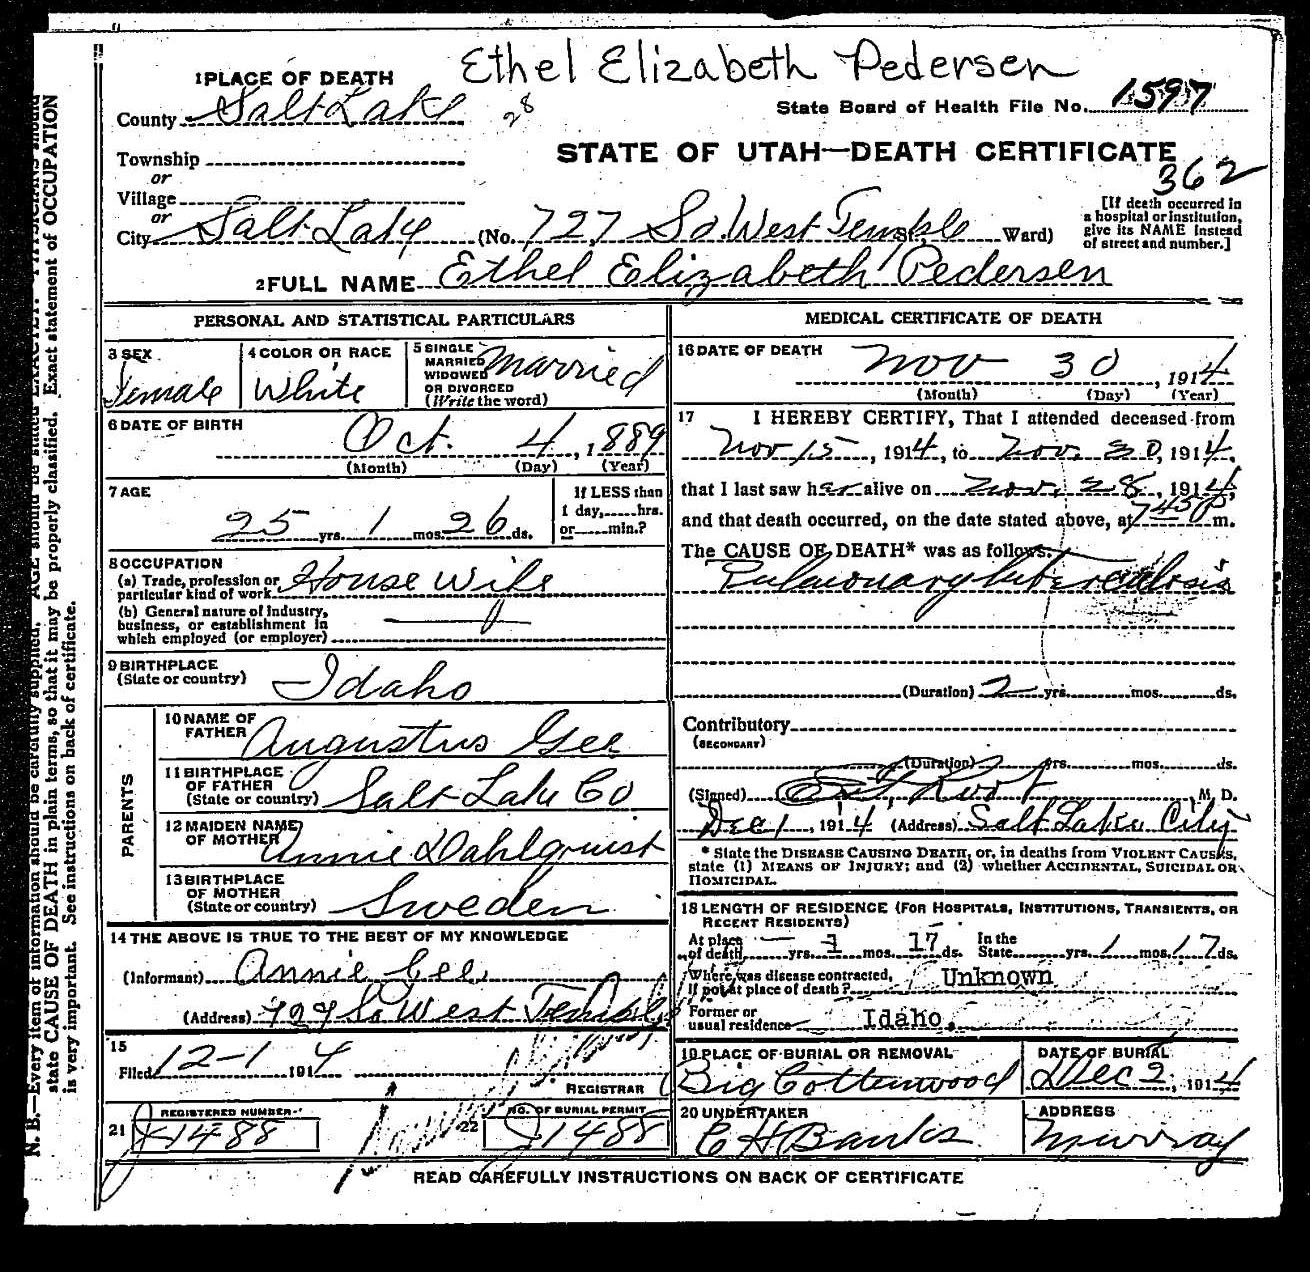 Ethel Elizabeth Pedersen
1 PLACE OF DEATH
County Salt Lake 28
State Board of Health File No. 1597
STATE OF UTAH—DEATH CERTIFICATE
362
Township
or
Village
or
City Salt Lake (No. 727 So. West Temple St. Ward)
[If death occurred in
a hospital or institution,
give its NAME instead
of street and number.]
2 FULL NAME Ethel Elizabeth Pedersen
PERSONAL AND STATISTICAL PARTICULARS
3 SEX
Female
4 COLOR OR RACE
White
5 SINGLE
MARRIED
WIDOWED
OR DIVORCED
(Write the word)
Married
6 DATE OF BIRTH
Oct. 4, 1889
(Month) (Day) (Year)
7 AGE
25 yrs. 1 mos. 26 ds.
If LESS than
1 day, hrs.
or min.?
8 OCCUPATION
(a) Trade, profession or
particular kind of work House Wife
(b) General nature of industry,
business, or establishment in
which employed (or employer)
9 BIRTHPLACE
(State or country) Idaho
PARENTS
10 NAME OF
FATHER Augustus Gee
11 BIRTHPLACE
OF FATHER
(State or country) Salt Lake Co
12 MAIDEN NAME
OF MOTHER Annie Dahlquist
13 BIRTHPLACE
OF MOTHER
(State or country) Sweden
14 THE ABOVE IS TRUE TO THE BEST OF MY KNOWLEDGE
(Informant) Annie Gee
(Address) 727 So West Temple
15
Filed 12-1 1914
REGISTRAR
21 REGISTERED NUMBER
J 1488
22 NO. OF BURIAL PERMIT
J 1488
MEDICAL CERTIFICATE OF DEATH
16 DATE OF DEATH
Nov 30, 1914
(Month) (Day) (Year)
17 I HEREBY CERTIFY, That I attended deceased from
Nov 15, 1914, to Nov. 30, 1914.
that I last saw her alive on Nov. 28, 1914,
and that death occurred, on the date stated above, at 745 P m.
The CAUSE OF DEATH* was as follows:
Pulmonary tuberculosis
(Duration) 2 yrs. mos. ds.
Contributory
(SECONDARY)
(Duration) yrs. mos. ds.
(Signed) Root M. D.
Dec 1, 1914 (Address) Salt Lake City
* State the DISEASE CAUSING DEATH, or, in deaths from VIOLENT CAUSES,
state (1) MEANS OF INJURY; and (2) whether ACCIDENTAL, SUICIDAL OR
HOMICIDAL.
18 LENGTH OF RESIDENCE (FOR HOSPITALS, INSTITUTIONS, TRANSIENTS, OR
RECENT RESIDENTS)
At place
of death — yrs. 1 mos. 17 ds. In the
State yrs. 1 mos. 17 ds.
Where was disease contracted,
If not at place of death? Unknown
Former or
usual residence Idaho.
19 PLACE OF BURIAL OR REMOVAL
Big Cottonwood
DATE OF BURIAL
Dec 2, 1914
20 UNDERTAKER
C H Banks
ADDRESS
Murray
READ CAREFULLY INSTRUCTIONS ON BACK OF CERTIFICATE
N. B.—Every item of information should be carefully supplied. AGE should be stated EXACTLY. PHYSICIANS should
state CAUSE OF DEATH in plain terms, so that it may be properly classified. Exact statement of OCCUPATION
is very important. See instructions on back of certificate.